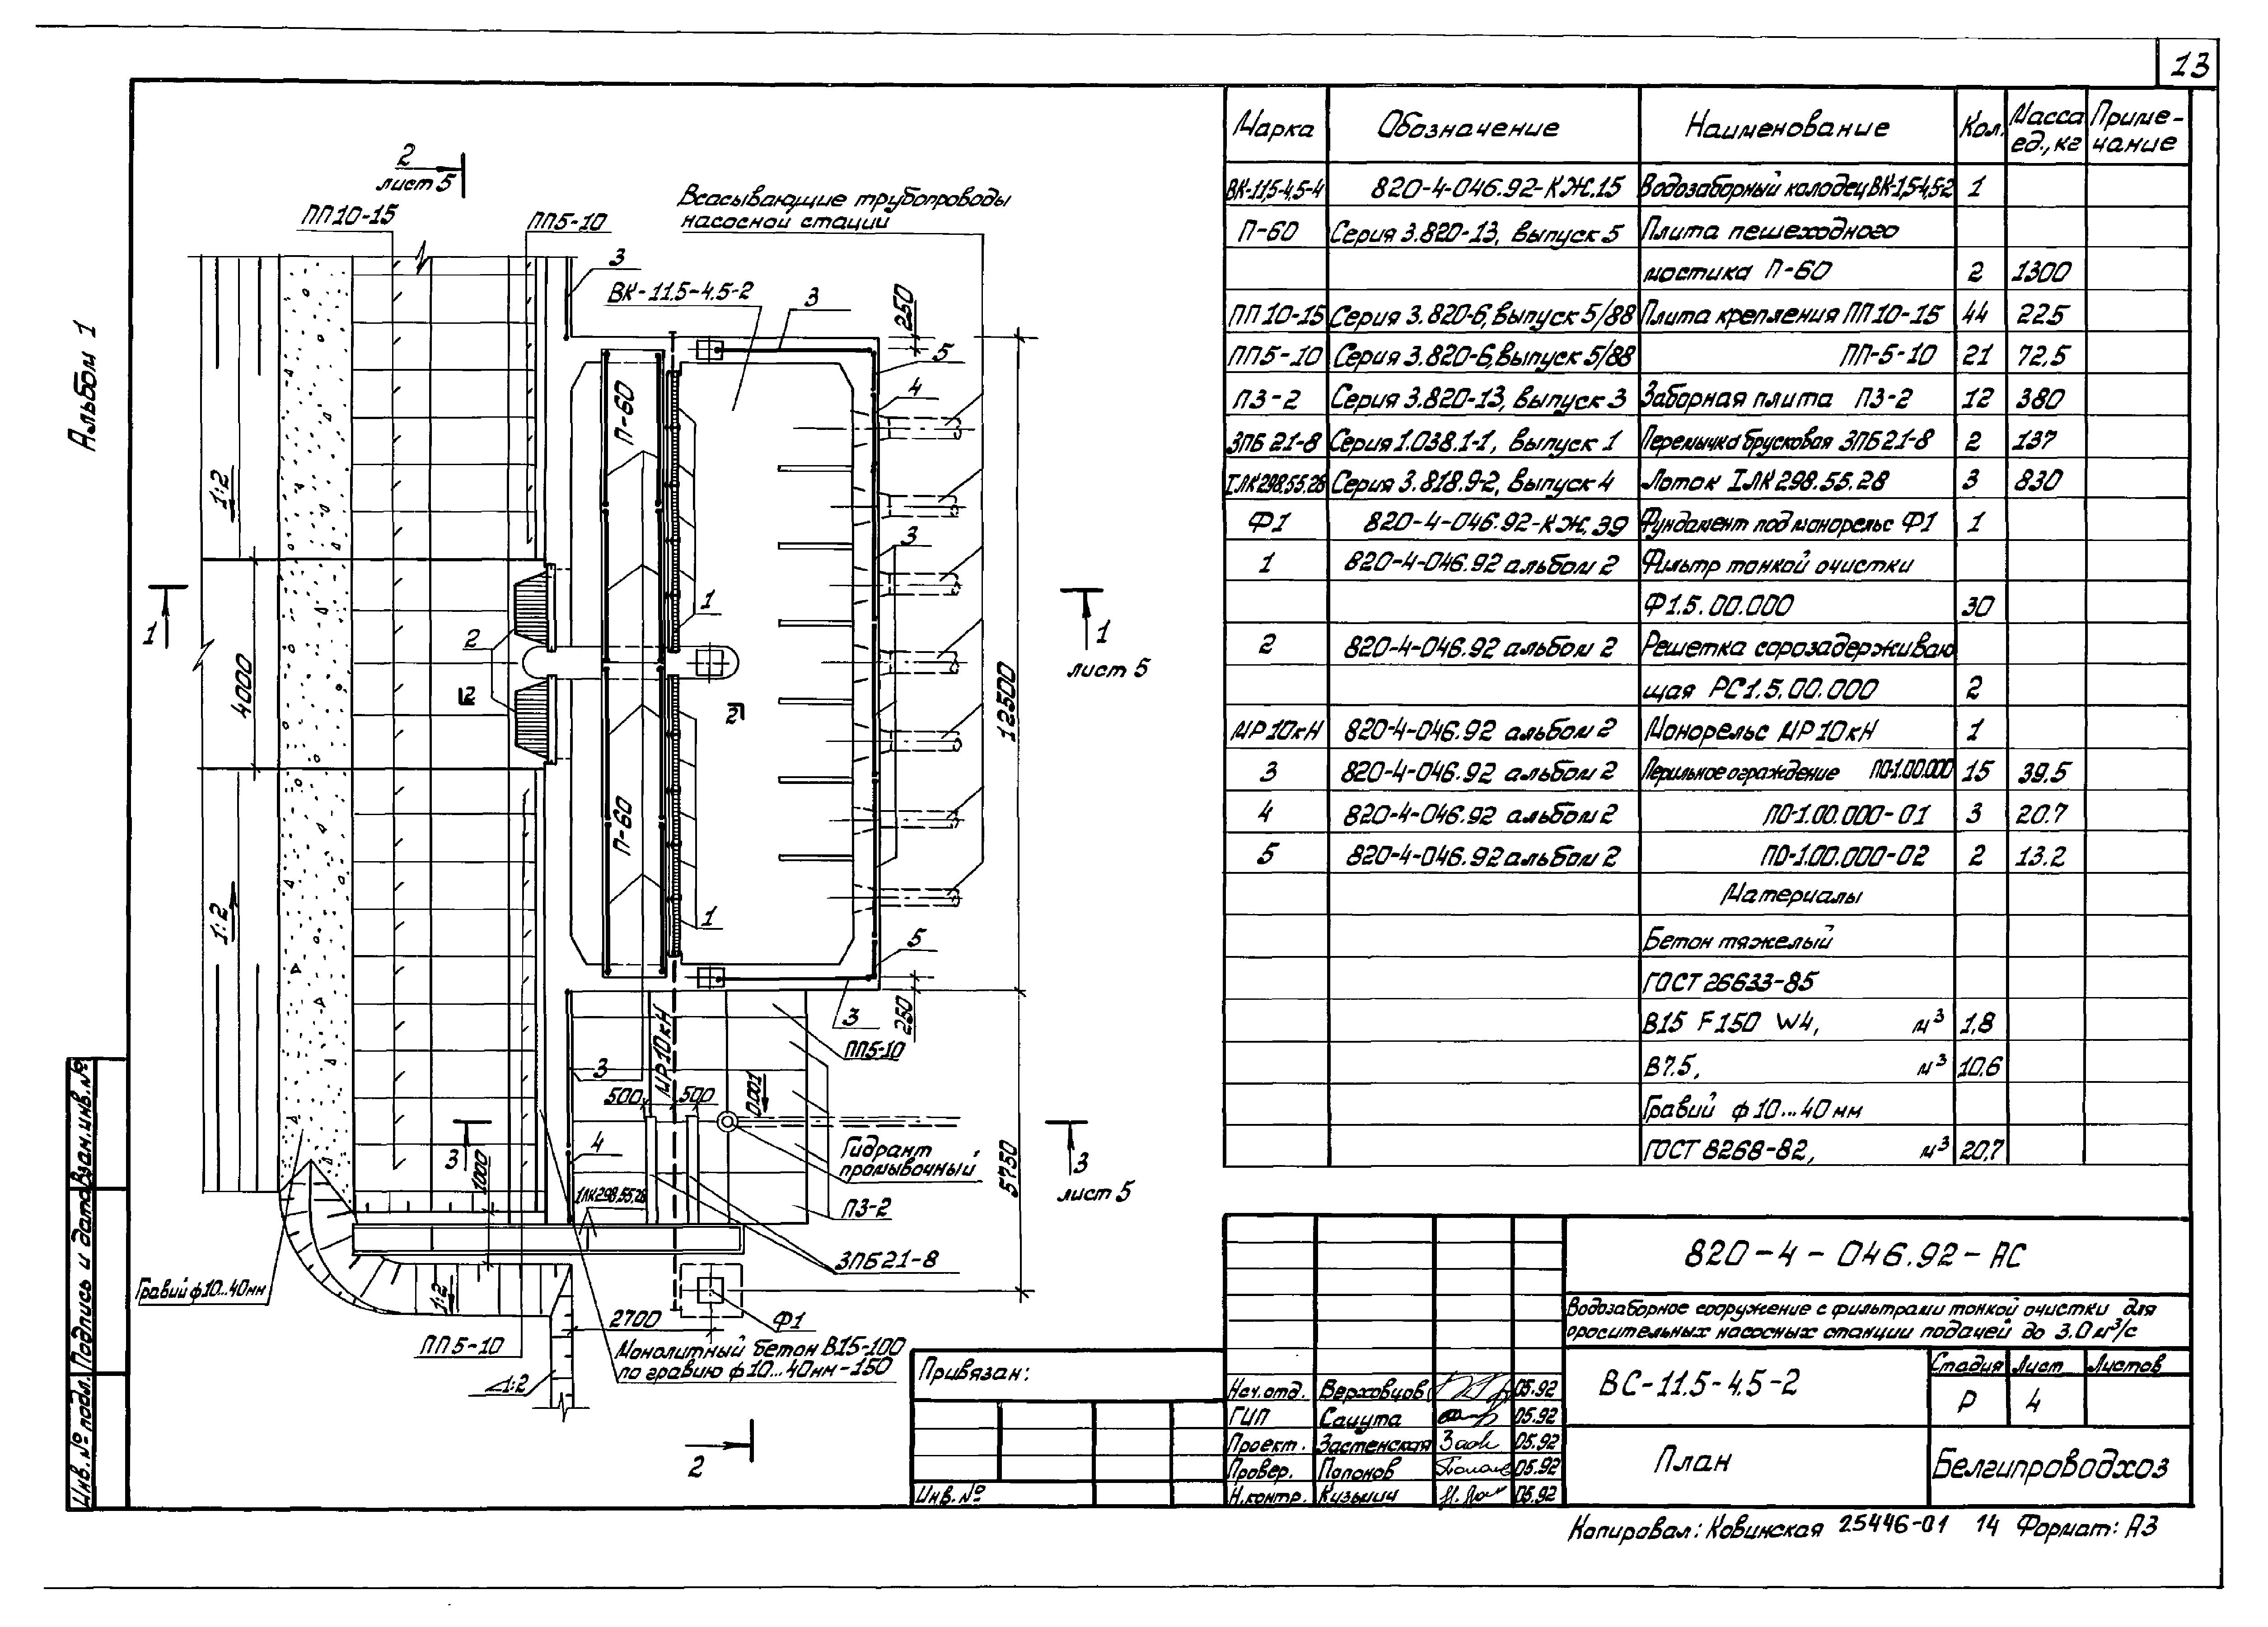 13
Альбом 1
2
лист 5
ПП10-15
ПП5-10
Всасывающие трубопроводы
насосной станции
3
ВК-11.5-4.5-2
3
250
5
4
П-60
1:2
3
1
1
2
4000
2
2
1
лист 5
12500
П-60
1:2
1
5
3
250
МР10кН
ПП5-10
3
500
500
0.001
3
4
Гидрант
промывочный
3
лист 5
1000
1ЛК298.55.28
П3-2
5750
3ПБ21-8
Гравий ф10...40мм
1:2
Ф1
2700
ПП5-10
Монолитный бетон В15-100
по гравию ф10...40мм-150
1:2
2
Марка Обозначение Наименование Кол. Масса ед.,кг Приме-чание
ВК-11,5-4,5-4 820-4-046.92-КЖ.15 Водозаборный колодец ВК-1,5-4,5-2 1
П-60 Серия 3.820-13, выпуск 5 Плита пешеходного
мостика П-60 2 1300
ПП10-15 Серия 3.820-6, выпуск 5/88 Плита крепления ПП10-15 44 225
ПП5-10 Серия 3.820-6, выпуск 5/88 ПП-5-10 21 72.5
П3-2 Серия 3.820-13, выпуск 3 Заборная плита П3-2 12 380
3ПБ 21-8 Серия 1.038.1-1, выпуск 1 Перемычка брусковая 3ПБ21-8 2 137
1ЛК298.55.28 Серия 3.818.9-2, выпуск 4 Лоток 1ЛК298.55.28 3 830
Ф1 820-4-046.92-КЖ.39 Фундамент под монорельс Ф1 1
1 820-4-046.92 альбом 2 Фильтр тонкой очистки
Ф1.5.00.000 30
2 820-4-046.92 альбом 2 Решетка сорозадерживаю
щая РС1.5.00.000 2
МР10кН 820-4-046.92 альбом 2 Монорельс МР10кН 1
3 820-4-046.92 альбом 2 Перильное ограждение ПО-1.00.000 15 39.5
4 820-4-046.92 альбом 2 ПО-1.00.000-01 3 20.7
5 820-4-046.92 альбом 2 ПО-1.00.000-02 2 13.2
Материалы
Бетон тяжелый
ГОСТ 26633-85
В15 F150 W4, м³ 1,8
В7.5, м³ 10,6
Гравий ф10...40мм
ГОСТ 8268-82, м³ 20,7
820-4-046.92-АС
Водозаборное сооружение с фильтрами тонкой очистки для
оросительных насосных станций подачей до 3.0 м³/с
ВС-11.5-4.5-2
Стадия Лист Листов
Р 4
План
Белгипроводхоз
Привязан:
Инв. №
Нач. отд. Верховцов 05.92
ГИП Сацута 05.92
Проект. Застенская 05.92
Провер. Папонов 05.92
Н.контр. Кузьмич 05.92
Инв. № подл. Подпись и дата Взам. инв. №
Копировал: Ковинская 25446-01 14 Формат: А3